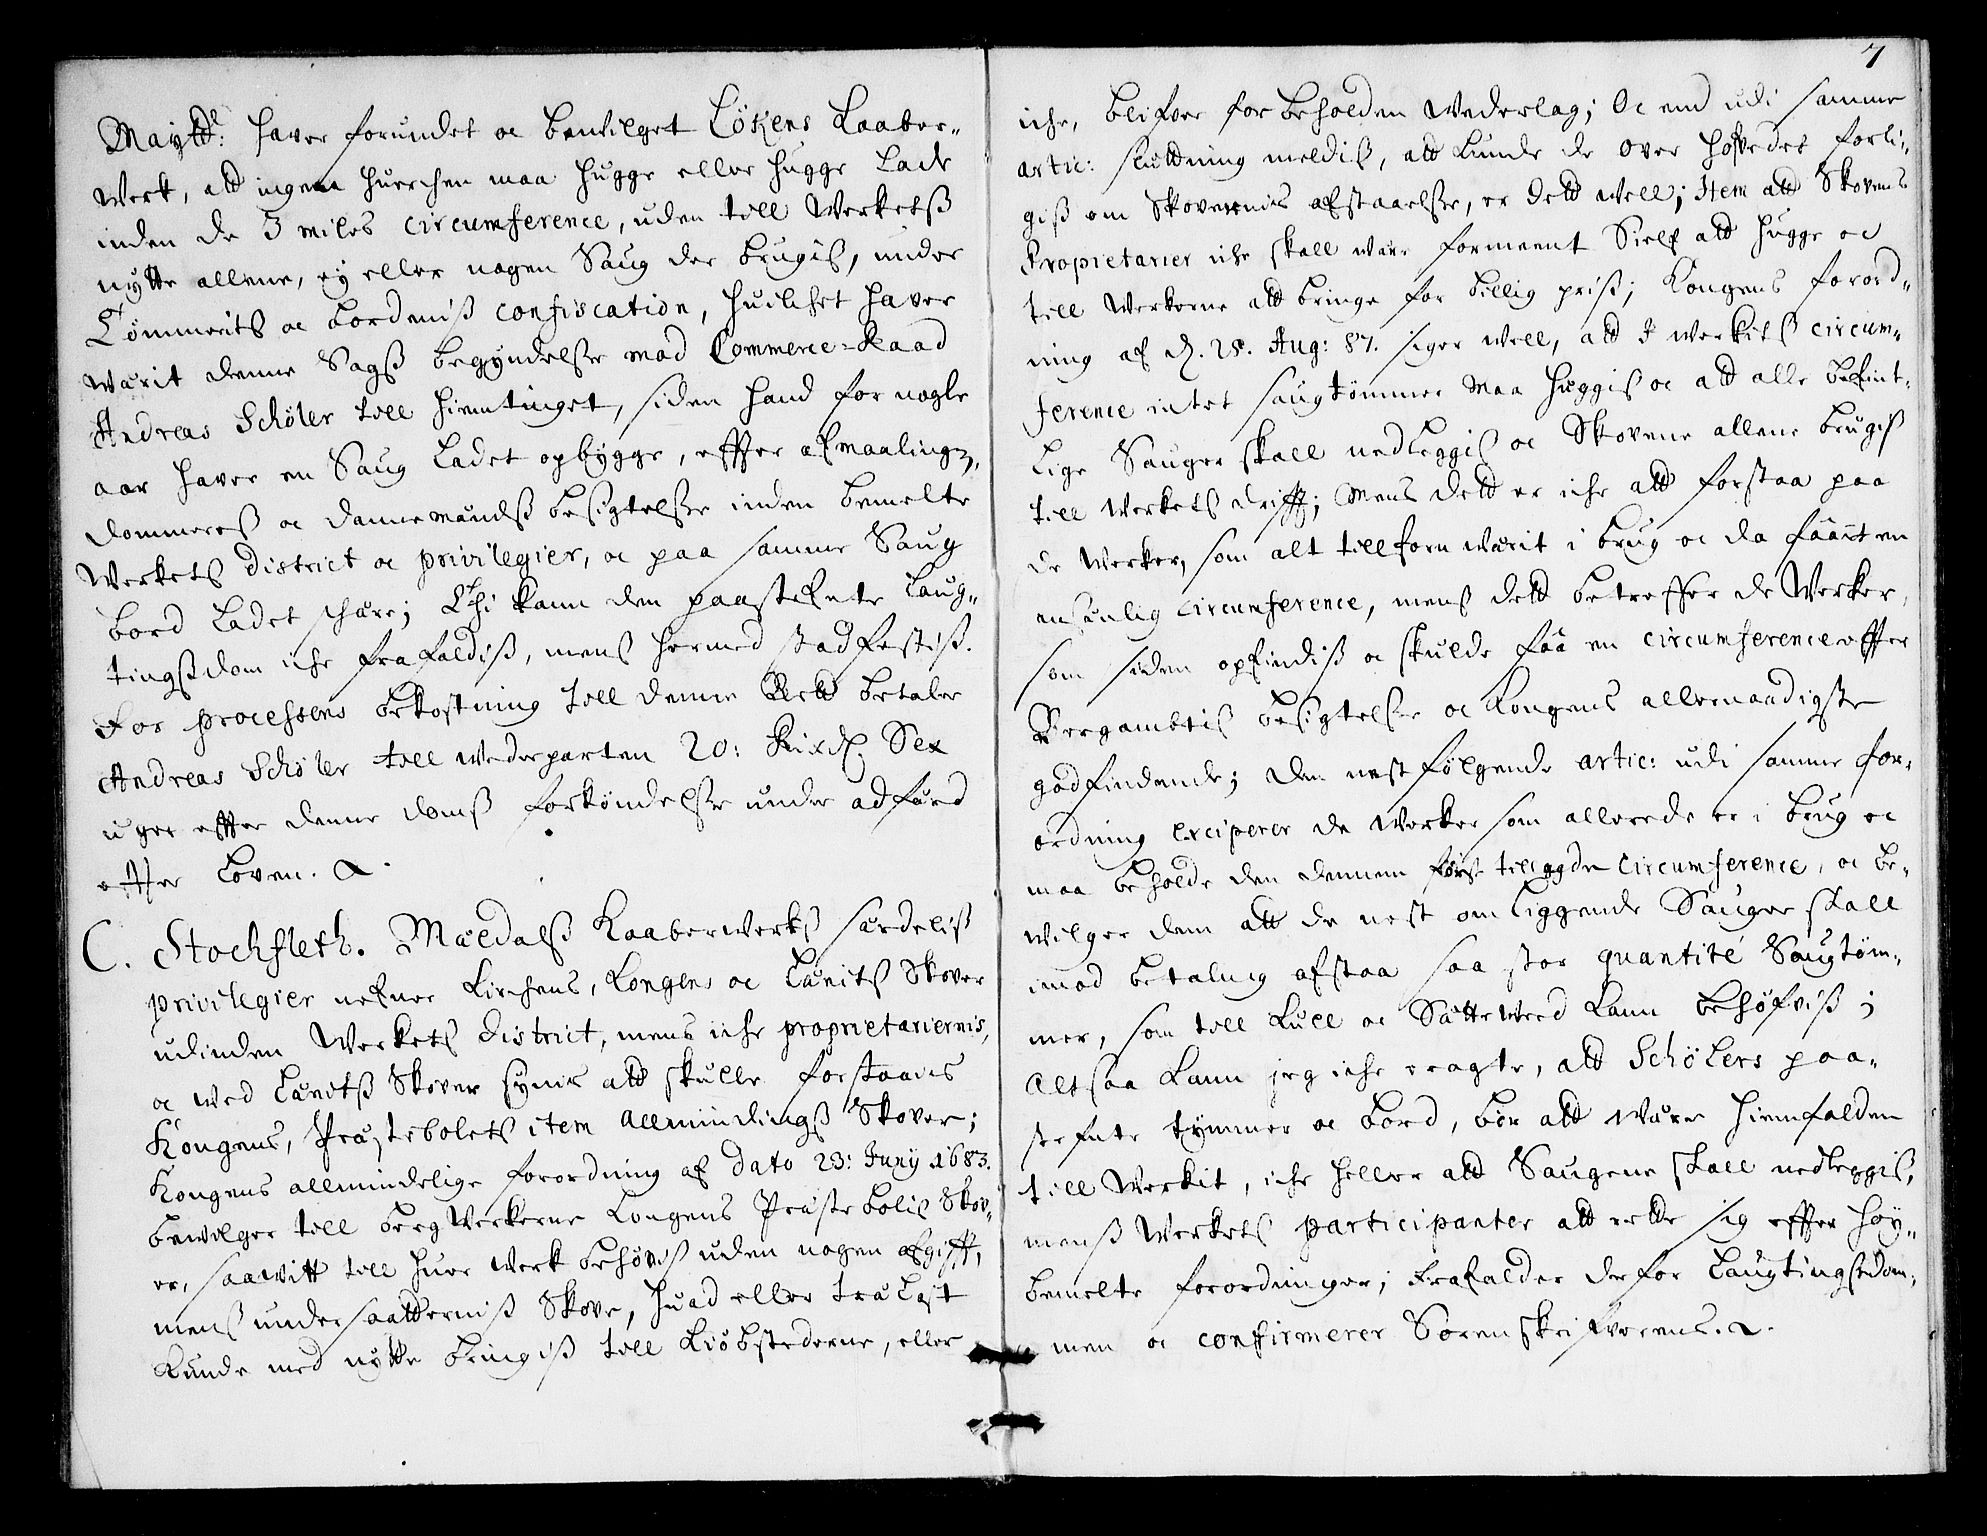 Maÿttt: haver forundet oc bevilget Lökens Kaaber-
Werk, att ingen huerchen maa hugge eller hugge Lade
inden de 3 miles circumference, uden till Werketß
nytte allene, ey eller nogen Saug der brugis, under
Tömmerits oc bordeniß confiscation, huilchet haver
warit denne Sagß begyndelsse mod Commerce-Raad
Andreas Schöler till hiemtinget, siden hand for nogle
aar haver en Saug Ladet opbygge, effter afmaalings,
dommereß oc dannemændß besigtelsse inden bemelte
Werkets district oc privilegier, oc paa samme Saug
bord Ladet schære; Thi kann den paastefnte Laug-
tingßdom iche frafaldiß, mens hermed stadfestiß.
For processens bekostning till denne Rett betaler
Andreas Schöler till wederparten 20: Rixd. Sex
uger effter denne domß forkyndelsse under adfærd
effter Loven.
C. Stochfleth. Mældalß Kaaberwerks særdeliß
privilegier nefner Kirchens, Kongens oc Lænits Skover
udinden Werkets district, mens iche proprietariernis,
oc wed Lænitß Skover synis att skulle forstaaes
Kongens, Præstebolets item Allmindingß Skover;
Kongens allmindelige forordning af dato 23: Junÿ 1683.
bewilger till bergWerkerne Kongens Præstebolis Skov-
er, saawitt till huer Werk behøvis uden nogen afgifft,
menß undersaatterniß Skove, huad eller træLast
Kunde med nytte bringiß till Kiöbstederne, eller
7
iche, blifver forbeholden Wederlag; Oc end udi samme
artic: sluttning meldiß, att kunde de over hofvedet forli-
giß om Skovernis afstaaelsse, er dett well; Item att Skovens
Proprietarier iche skall være formeent Sielf att hugge oc
till Werkerne att bringe for billig priß; Kongens forord-
ning af d. 28. Aug: 87. siger well, att I werkits circum-
ference intet saugtømmer maa huggis oc att alle befint-
lige Sauger skall nedleggis oc Skovene allene brugis
till Werkets drifft; Mens dett er iche att forstaa paa
de Werker, som alt tillforn warit i brug oc da faait en
ansænlig circumference, menß dett betreffer de Werker,
som siden opfindiß oc skulde faa en circumference effter
Bergambtis besigtelsse oc Kongens allernaadigste
godfindende; den nest følgende artic: udi samme for-
ordning exciperer de Werker som allerede er i brug oc
maa beholde den dennem først tillagde circumference, oc be-
wilger dem att de nest omliggende Sauger skall
imod betaling afstaa saa stor quantité Saugtøm-
mer, som till Kull oc Sætteweed kann behøfviß;
Altsaa kann jeg iche eragte, att Schölers paa-
stefnte tymmer oc bord, bør att være hiemfalden
till Werkit, iche heller att Saugene skall nedleggis,
menß Werkets participanter att rette sig effter høy-
bemelte forordninger; Frafalder derfor Laugtingsdom-
men oc confirmerer Sorenskrifverens.